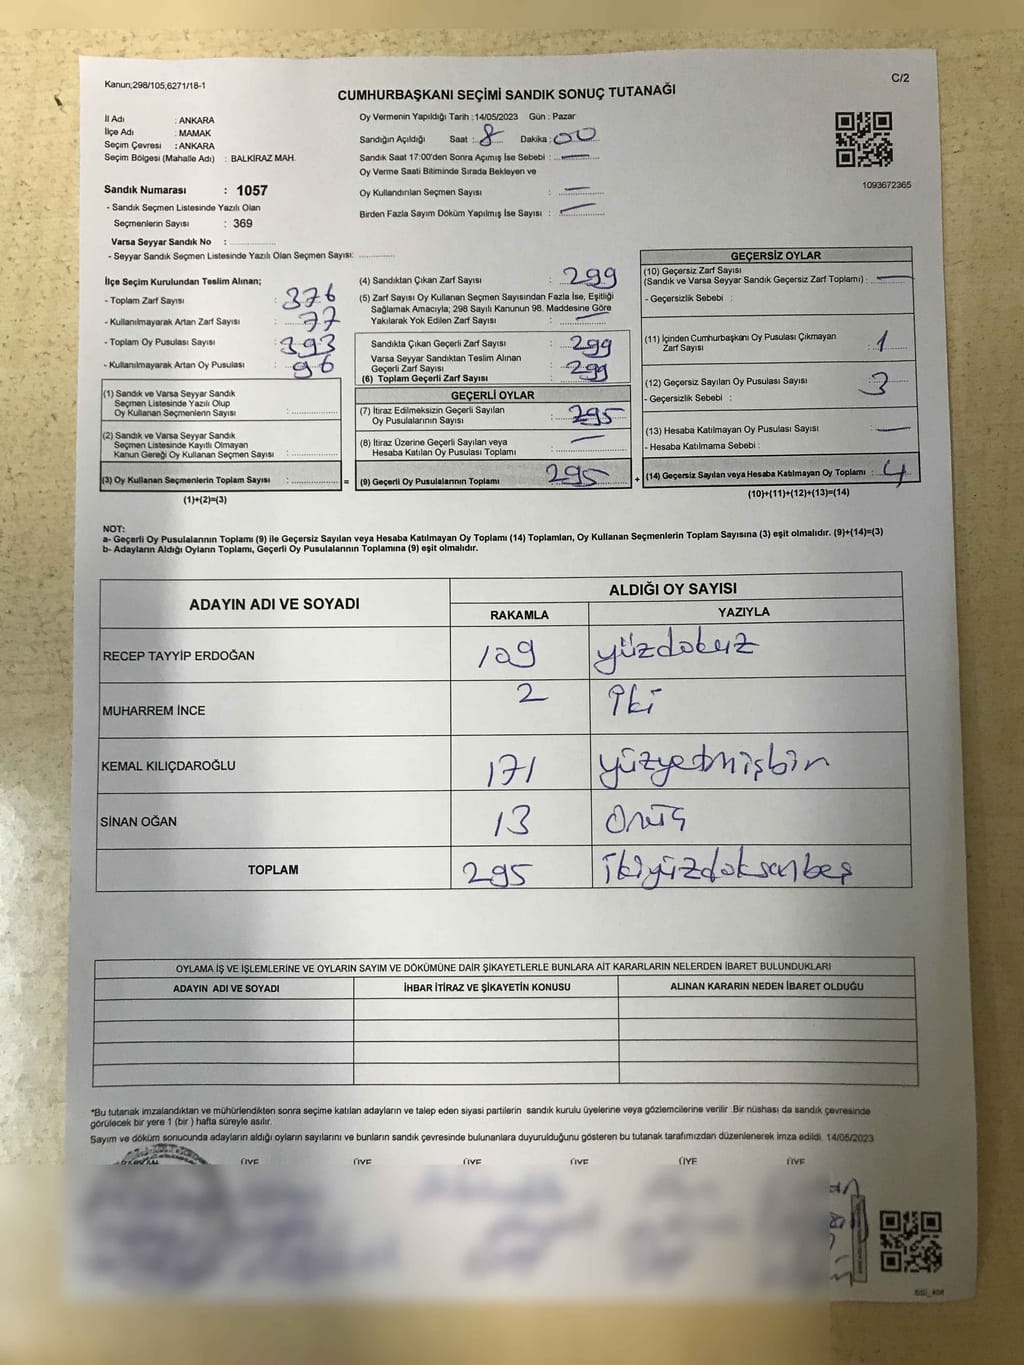 Kanun;298/105,6271/18-1
C/2
CUMHURBAŞKANI SEÇİMİ SANDIK SONUÇ TUTANAĞI
İl Adı : ANKARA
İlçe Adı : MAMAK
Seçim Çevresi : ANKARA
Seçim Bölgesi (Mahalle Adı) : BALKİRAZ MAH.
Sandık Numarası : 1057
- Sandık Seçmen Listesinde Yazılı Olan
Seçmenlerin Sayısı : 369
Varsa Seyyar Sandık No :
- Seyyar Sandık Seçmen Listesinde Yazılı Olan Seçmen Sayısı:
Oy Vermenin Yapıldığı Tarih : 14/05/2023 Gün : Pazar
Sandığın Açıldığı Saat : 8 Dakika : 00
Sandık Saat 17:00'den Sonra Açımış İse Sebebi : —
Oy Verme Saati Bitiminde Sırada Bekleyen ve
Oy Kullandırılan Seçmen Sayısı : —
Birden Fazla Sayım Döküm Yapılmış İse Sayısı : —
1093672365
İlçe Seçim Kurulundan Teslim Alınan;
- Toplam Zarf Sayısı : 376
- Kullanılmayarak Artan Zarf Sayısı : 77
- Toplam Oy Pusulası Sayısı : 393
- Kullanılmayarak Artan Oy Pusulası : 96
(1) Sandık ve Varsa Seyyar Sandık
Seçmen Listesinde Yazılı Olup
Oy Kullanan Seçmenlerin Sayısı :
(2) Sandık ve Varsa Seyyar Sandık
Seçmen Listesinde Kayıtlı Olmayan
Kanun Gereği Oy Kullanan Seçmen Sayısı :
(3) Oy Kullanan Seçmenlerin Toplam Sayısı : =
(1)+(2)=(3)
(4) Sandıktan Çıkan Zarf Sayısı : 299
(5) Zarf Sayısı Oy Kullanan Seçmen Sayısından Fazla İse, Eşitliği
Sağlamak Amacıyla; 298 Sayılı Kanunun 98. Maddesine Göre
Yakılarak Yok Edilen Zarf Sayısı : —
Sandıkta Çıkan Geçerli Zarf Sayısı : 299
Varsa Seyyar Sandıktan Teslim Alınan
Geçerli Zarf Sayısı : 299
(6) Toplam Geçerli Zarf Sayısı
GEÇERLİ OYLAR
(7) İtiraz Edilmeksizin Geçerli Sayılan
Oy Pusulalarının Sayısı : 295
(8) İtiraz Üzerine Geçerli Sayılan veya
Hesaba Katılan Oy Pusulası Toplamı : —
(9) Geçerli Oy Pusulalarının Toplamı : 295 +
GEÇERSİZ OYLAR
(10) Geçersiz Zarf Sayısı
(Sandık ve Varsa Seyyar Sandık Geçersiz Zarf Toplamı) : —
- Geçersizlik Sebebi :
(11) İçinden Cumhurbaşkanı Oy Pusulası Çıkmayan
Zarf Sayısı : 1
(12) Geçersiz Sayılan Oy Pusulası Sayısı : 3
- Geçersizlik Sebebi :
(13) Hesaba Katılmayan Oy Pusulası Sayısı : —
- Hesaba Katılmama Sebebi :
(14) Geçersiz Sayılan veya Hesaba Katılmayan Oy Toplamı : 4
(10)+(11)+(12)+(13)=(14)
NOT:
a- Geçerli Oy Pusulalarının Toplamı (9) ile Geçersiz Sayılan veya Hesaba Katılmayan Oy Toplamı (14) Toplamları, Oy Kullanan Seçmenlerin Toplam Sayısına (3) eşit olmalıdır. (9)+(14)=(3)
b- Adayların Aldığı Oyların Toplamı, Geçerli Oy Pusulalarının Toplamına (9) eşit olmalıdır.
ADAYIN ADI VE SOYADI
ALDIĞI OY SAYISI
RAKAMLA YAZIYLA
RECEP TAYYİP ERDOĞAN 109 yüzdokuz
MUHARREM İNCE 2 iki
KEMAL KILIÇDAROĞLU 171 yüzyetmişbir
SİNAN OĞAN 13 onüç
TOPLAM 295 ikiyüzdoksanbeş
OYLAMA İŞ VE İŞLEMLERİNE VE OYLARIN SAYIM VE DÖKÜMÜNE DAİR ŞİKAYETLERLE BUNLARA AİT KARARLARIN NELERDEN İBARET BULUNDUKLARI
ADAYIN ADI VE SOYADI İHBAR İTİRAZ VE ŞİKAYETİN KONUSU ALINAN KARARIN NEDEN İBARET OLDUĞU
*Bu tutanak imzalandıktan ve mühürlendikten sonra seçime katılan adayların ve talep eden siyasi partilerin sandık kurulu üyelerine veya gözlemcilerine verilir .Bir nüshası da sandık çevresinde
görülecek bir yere 1 (bir ) hafta süreyle asılır.
Sayım ve döküm sonucunda adayların aldığı oyların sayılarını ve bunların sandık çevresinde bulunanlara duyurulduğunu gösteren bu tutanak tarafımızdan düzenlenerek imza edildi. 14/05/2023
ÜYE ÜYE ÜYE ÜYE ÜYE ÜYE